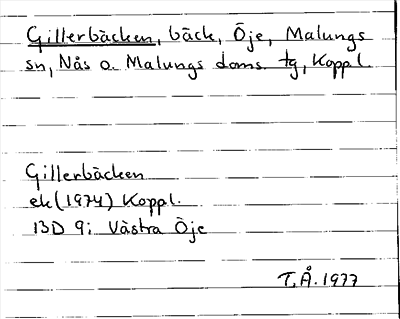 Gillerbäcken, bäck, Öje, Malungs
sn, Nås o. Malungs doms. tg, Koppl.
Gillerbäcken
ek (1974) Koppl.
13D 9i Västra Öje
T.Å. 1977